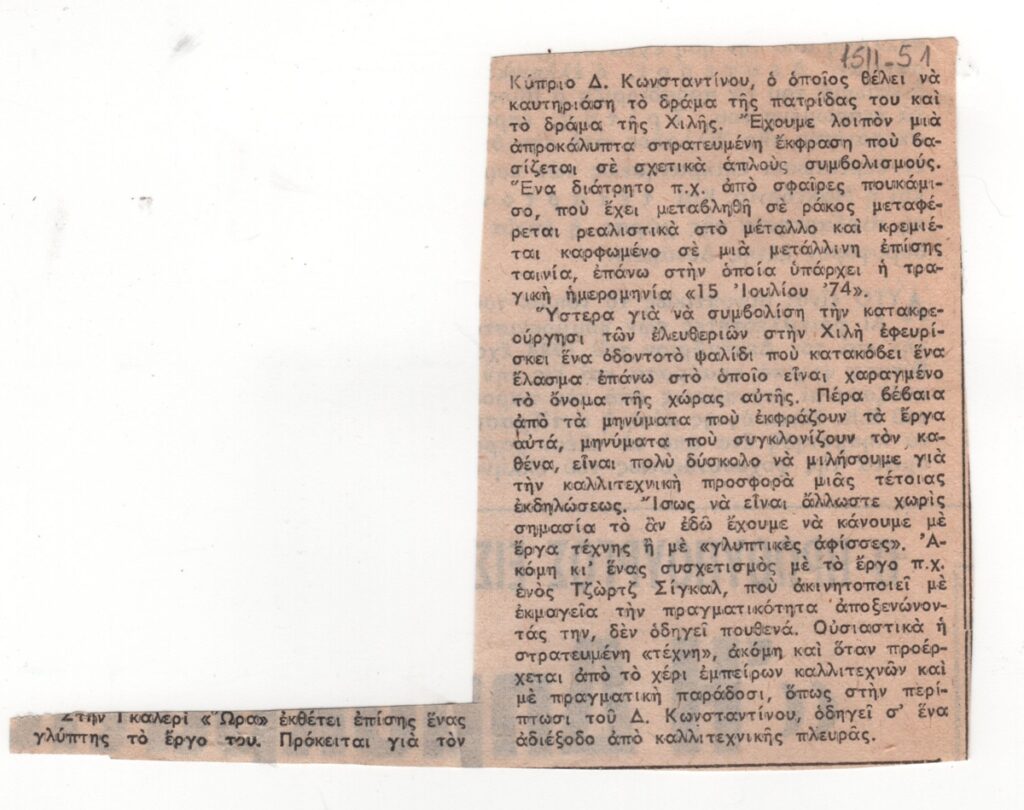 Στὴν Γκαλερὶ «Ὥρα» ἐκθέτει ἐπίσης ἕνας
γλύπτης τὸ ἔργο του. Πρόκειται γιὰ τὸν
1511-51
Κύπριο Δ. Κωνσταντίνου, ὁ ὁποῖος θέλει νὰ
καυτηριάση τὸ δράμα τῆς πατρίδας του καὶ
τὸ δράμα τῆς Χιλῆς. Ἔχουμε λοιπὸν μιὰ
ἀπροκάλυπτα στρατευμένη ἔκφραση ποὺ βα-
σίζεται σὲ σχετικὰ ἁπλοὺς συμβολισμούς.
Ἕνα διάτρητο π.χ. ἀπὸ σφαῖρες πουκάμι-
σο, ποὺ ἔχει μεταβληθῆ σὲ ράκος μεταφέ-
ρεται ρεαλιστικὰ στὸ μέταλλο καὶ κρεμιέ-
ται καρφωμένο σὲ μιὰ μετάλλινη ἐπίσης
ταινία, ἐπάνω στὴν ὁποία ὑπάρχει ἡ τρα-
γικὴ ἡμερομηνία «15 Ἰουλίου '74».
Ὕστερα γιὰ νὰ συμβολίση τὴν κατακρε-
ούργησι τῶν ἐλευθεριῶν στὴν Χιλὴ ἐφευρί-
σκει ἕνα ὀδοντοτὸ ψαλίδι ποὺ κατακόβει ἕνα
ἔλασμα ἐπάνω στὸ ὁποῖο εἶναι χαραγμένο
τὸ ὄνομα τῆς χώρας αὐτῆς. Πέρα βέβαια
ἀπὸ τὰ μηνύματα ποὺ ἐκφράζουν τὰ ἔργα
αὐτά, μηνύματα ποὺ συγκλονίζουν τὸν κα-
θένα, εἶναι πολὺ δύσκολο νὰ μιλήσουμε γιὰ
τὴν καλλιτεχνικὴ προσφορὰ μιᾶς τέτοιας
ἐκδηλώσεως. Ἴσως νὰ εἶναι ἄλλωστε χωρὶς
σημασία τὸ ἂν ἐδῶ ἔχουμε νὰ κάνουμε μὲ
ἔργα τέχνης ἢ μὲ «γλυπτικὲς ἀφίσσες». Ἀ-
κόμη κι' ἕνας συσχετισμὸς μὲ τὸ ἔργο π.χ.
ἑνὸς Τζὼρτζ Σίγκαλ, ποὺ ἀκινητοποιεῖ μὲ
ἐκμαγεῖα τὴν πραγματικότητα ἀποξενώνον-
τάς την, δὲν ὁδηγεῖ πουθενά. Οὐσιαστικὰ ἡ
στρατευμένη «τέχνη», ἀκόμη καὶ ὅταν προέρ-
χεται ἀπὸ τὸ χέρι ἐμπείρων καλλιτεχνῶν καὶ
μὲ πραγματικὴ παράδοσι, ὅπως στὴν περί-
πτωσι τοῦ Δ. Κωνσταντίνου, ὁδηγεῖ σ' ἕνα
ἀδιέξοδο ἀπὸ καλλιτεχνικῆς πλευρᾶς.